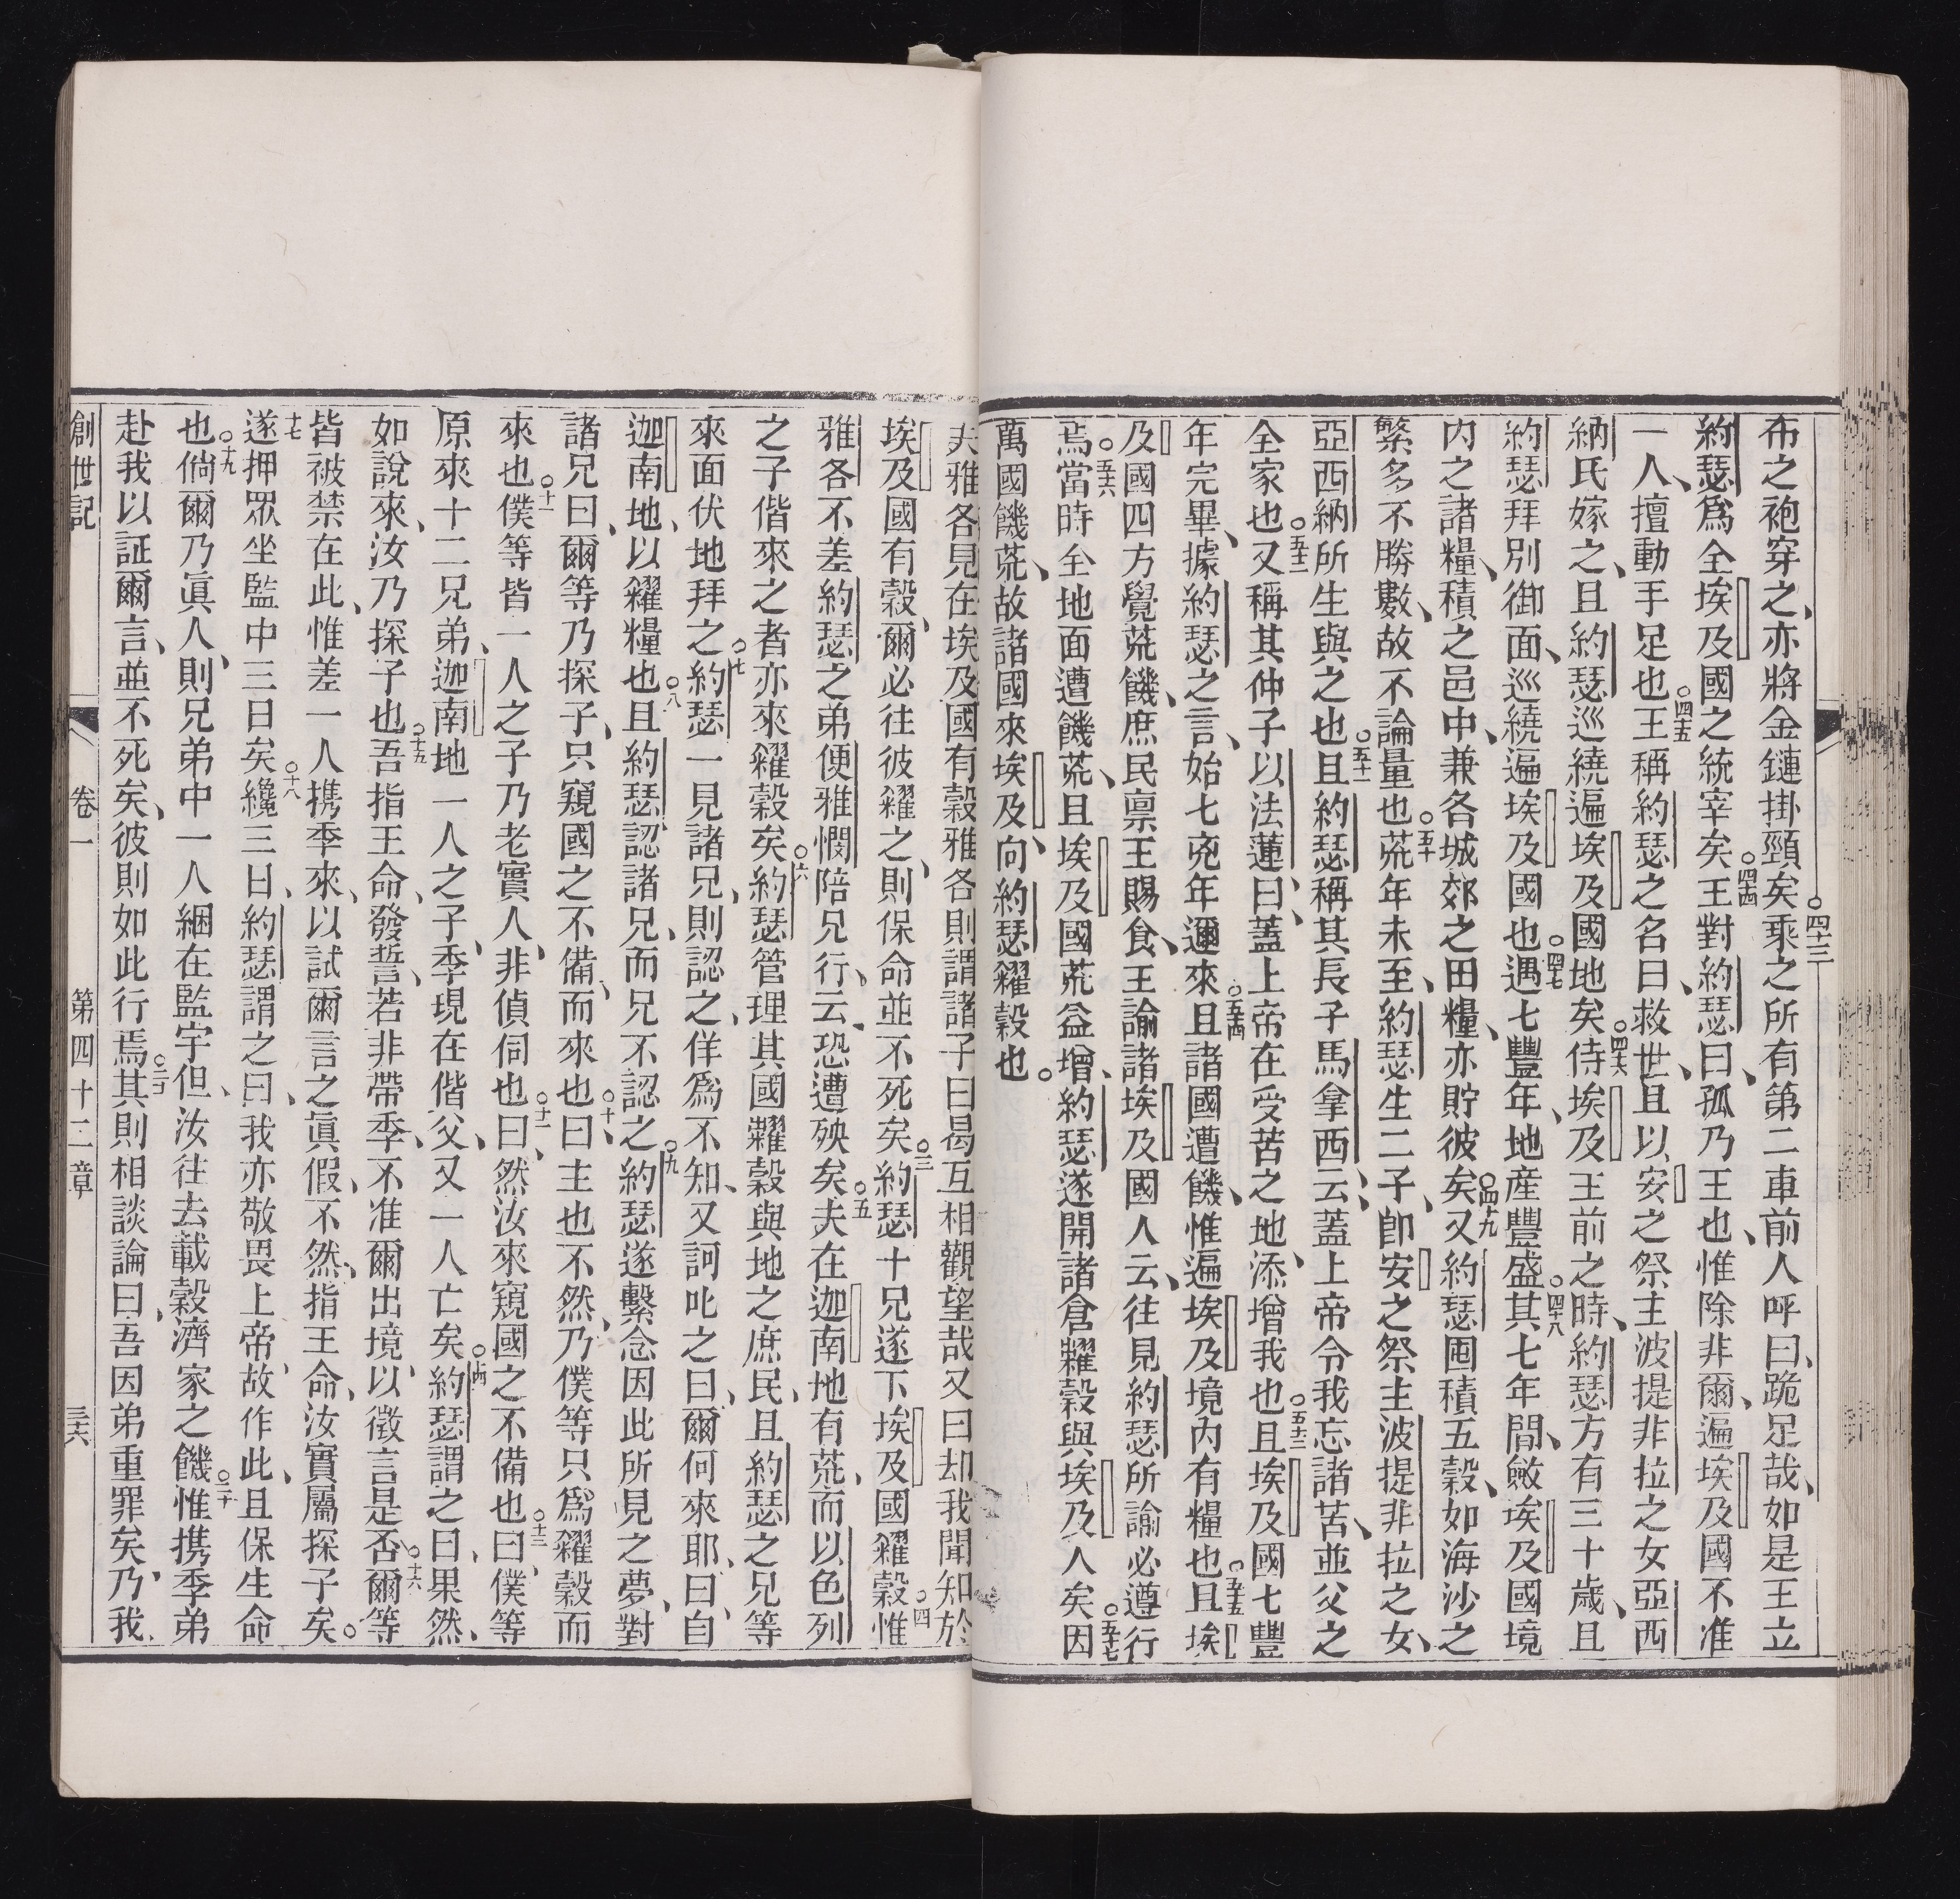 布之袍穿之、亦將金鏈掛頸矣○四十三乘之所有第二車前人呼曰、跪足哉、如是王立
約瑟爲全埃及國之統宰矣○四十四王對約瑟曰、孤乃王也、惟除非爾、遍埃及國不准
一人、擅動手足也○四十五王稱約瑟之名曰、救世、且以安之祭主波提非拉之女亞西
納氏嫁之、且約瑟巡繞遍埃及國地矣○四十六侍埃及王前之時、約瑟方有三十歲、且
約瑟拜別御面、巡繞遍埃及國也○四十七遇七豐年、地産豐盛○四十八其七年間、斂埃及國境
內之諸糧、積之邑中、兼各城郊之田糧、亦貯彼矣○四十九又約瑟囤積五穀、如海沙之
繁多不勝數、故不論量也○五十荒年未至、約瑟生二子、卽安之祭主波提非拉之女、
亞西納所生與之也○五十一且約瑟稱其長子馬拿西、云、蓋上帝令我忘諸苦、並父之
全家也○五十二又稱其仲子以法蓮曰、蓋上帝在受苦之地、添增我也○五十三且埃及國七豐
年完畢、據約瑟之言、始七兇年邇來○五十四且諸國遭饑、惟遍埃及境內有糧也○五十五且埃
及國四方覺荒饑、庶民禀王賜食、王諭諸埃及國人云、往見約瑟所諭必遵行
焉○五十六當時全地面遭饑荒、且埃及國荒益增、約瑟遂開諸倉糶穀與埃及人矣○五十七因
萬國饑荒、故諸國來埃及、向約瑟糴穀也。
夫雅各見在埃及國有穀雅各則謂諸子曰曷互相觀望哉又曰却我聞知於
埃及國有穀、爾必往彼糴之、則保命並不死矣○三約瑟十兄遂下埃及國糴穀○四惟
雅各不差約瑟之弟便雅憫陪兄行、云、恐遭殃矣○五夫在迦南地有荒、而以色列
之子偕來之者亦來糴穀矣○六約瑟管理其國糶穀與地之庶民、且約瑟之兄等
來面伏地拜之○七約瑟一見諸兄、則認之、佯爲不知、又訶叱之曰、爾何來耶、曰、自
迦南地、以糴糧也○八且約瑟認諸兄、而兄不認之○九約瑟遂繫念因此所見之夢、對
諸兄曰、爾等乃探子、只窺國之不備、而來也○十曰、主也不然、乃僕等只爲糴穀而
來也○十一僕等皆一人之子乃老實人、非偵伺也○十二曰、然汝來窺國之不備也○十三曰、僕等
原來十二兄弟、迦南地一人之子、季現在偕父、又一人亡矣○十四約瑟謂之曰、果然、
如說來、汝乃探子也○十五吾指王命、發誓、若非帶季、不准爾出境、以徵言是否○十六爾等
皆被禁在此、惟差一人携季來、以試爾言之眞假、不然、指王命、汝實屬探子矣。
十七遂押眾坐監中三日矣○十八纔三日、約瑟謂之曰、我亦敬畏上帝、故作此、且保生命
也○十九倘爾乃眞人、則兄弟中一人綑在監宇但、汝往去載穀濟家之饑○二十惟携季弟
赴我以証爾言、並不死矣、彼則如此行焉○二十一其則相談論曰、吾因弟重罪矣、乃我
創世記　卷一　第四十二章　三十六